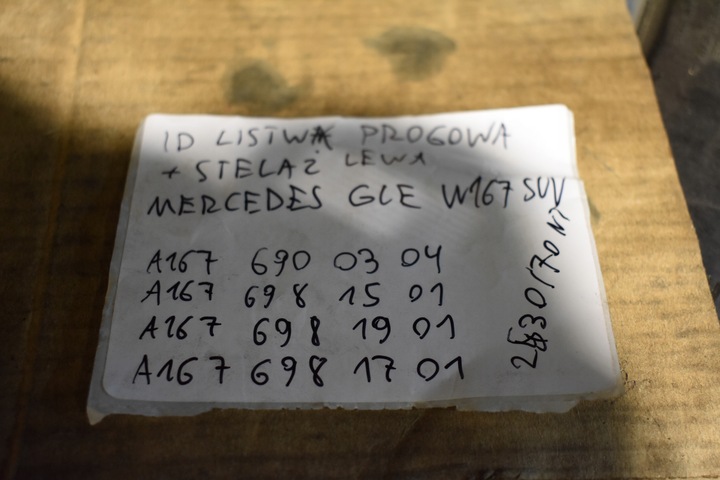 ID LISTWA PROGOWA
+ STELAŻ LEWA
MERCEDES GLE W167 SUV
A167 690 03 04
A167 698 15 01
A167 698 19 01
A167 698 17 01